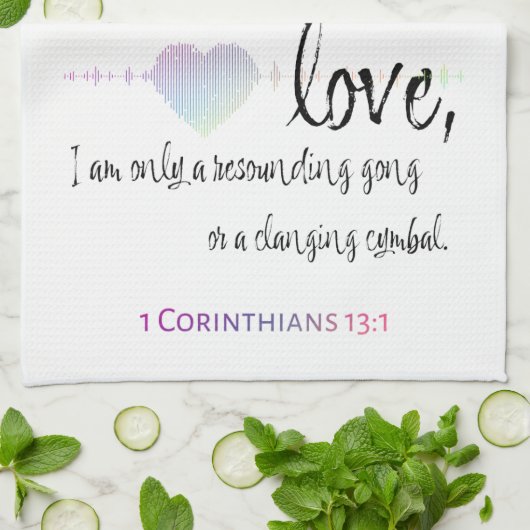 love,
I am only a resounding gong
or a clanging cymbal.
1 Corinthians 13:1